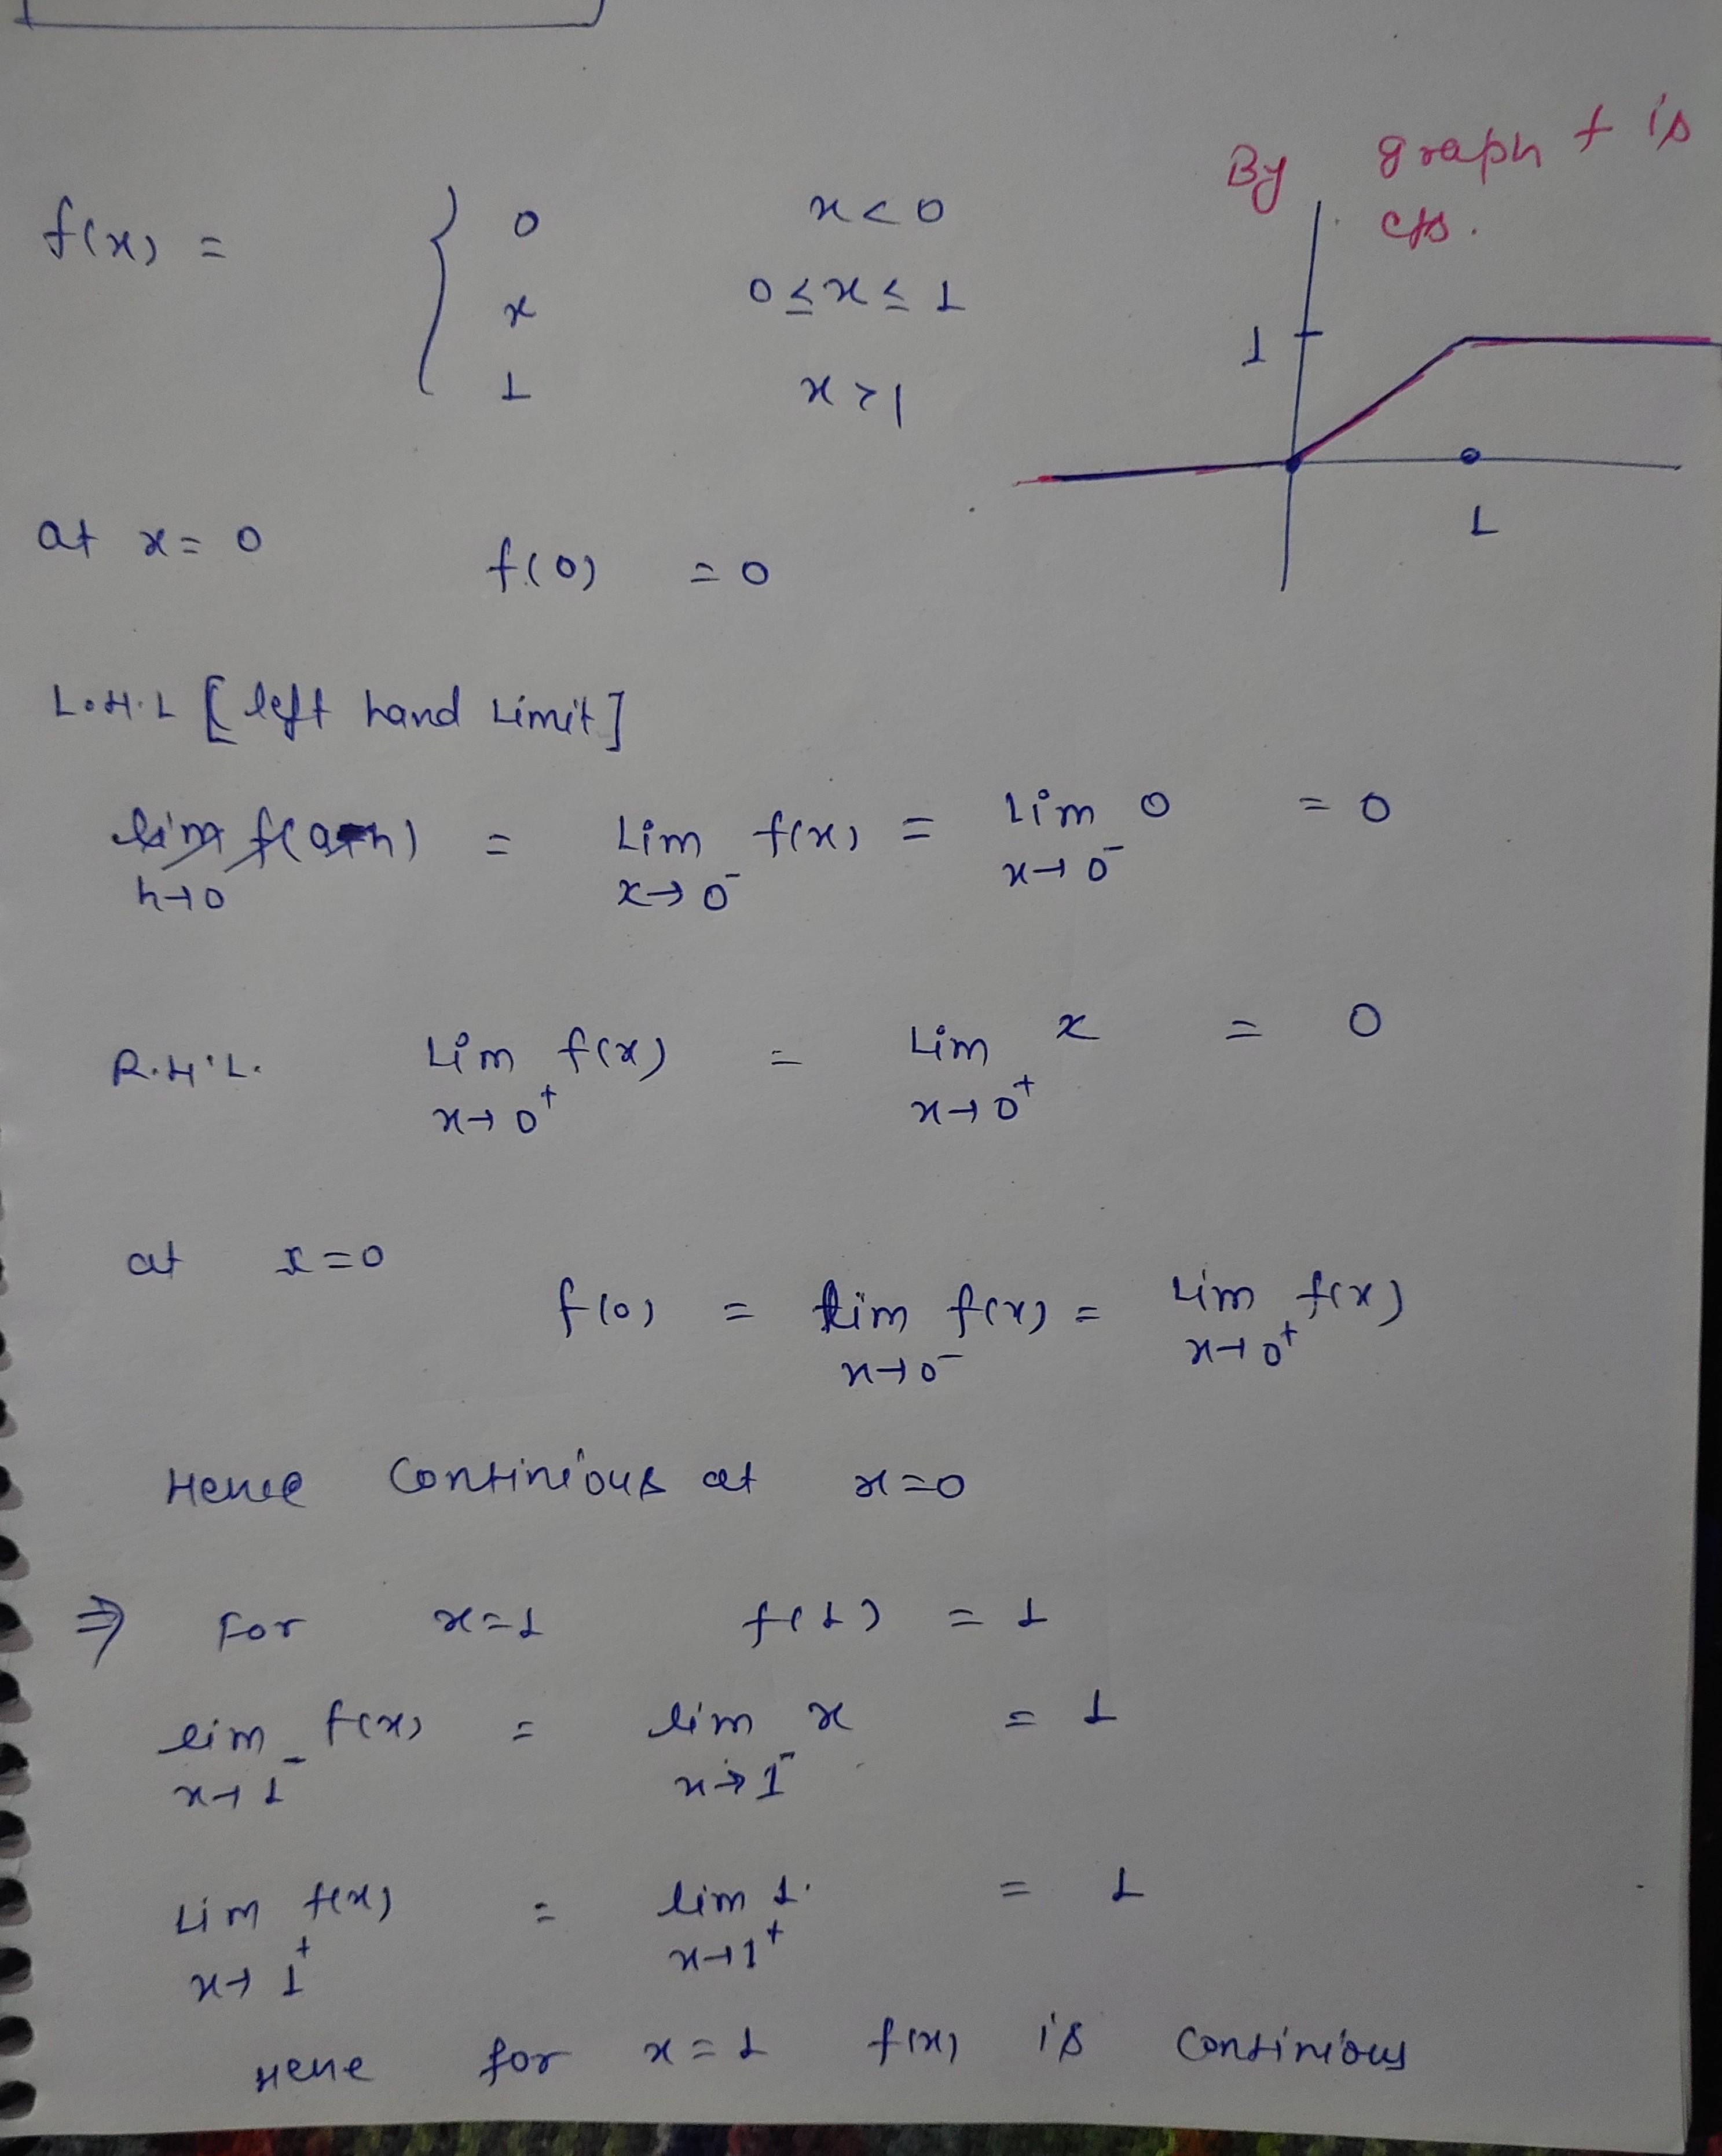 By graph f is
cts.
f(x) = { 0 x<0
x 0≤x≤1
1 x>1
1
1
at x=0 f(0) =0
L.H.L [left hand Limit]
= Lim f(x) = Lim 0 = 0
h→0 x→0⁻ x→0⁻
R.H.L. Lim f(x) = Lim x = 0
x→0⁺ x→0⁺
at x=0
f(0) = lim f(x) = Lim f(x)
x→0⁻ x→0⁺
Hence Continious at x=0
⇒ For x=1 f(1) = 1
lim f(x) = lim x = 1
x→1⁻ x→1⁻
Lim f(x) = lim 1. = 1
x→1⁺ x→1⁺
Here for x=1 f(x) is Continious